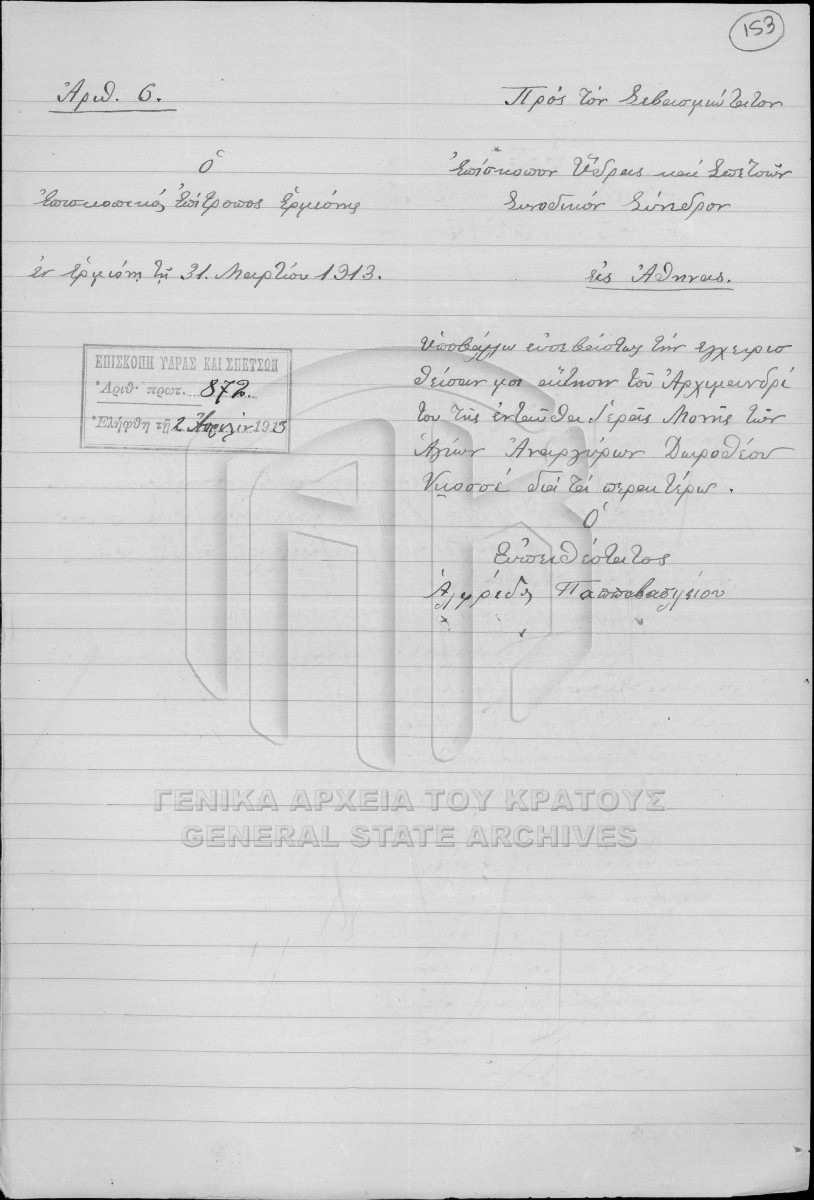 153
Ἀριθ. 6.
Ὁ
Ἐπισκοπικός Ἐπίτροπος Ἑρμιόνης
ἐν Ἑρμιόνῃ τῇ 31. Μαρτίου 1913.
Πρός τόν Σεβασμιώτατον
Ἐπίσκοπον Ὕδρας καί Σπετσῶν
Συνοδικόν Σύνεδρον
εἰς Ἀθήνας.
ΕΠΙΣΚΟΠΗ ΥΔΡΑΣ ΚΑΙ ΣΠΕΤΣΩΝ
Ἀριθ. πρωτ. 872.
Ἐλήφθη τῇ 2 Ἀπριλίου 1913
Ὑποβάλλω εὐσεβάστως τήν ἐγχειρισ
θεῖσαν μοι αἴτησιν τοῦ Ἀρχιμανδρί
του τῆς ἐνταῦθα Ἱερᾶς Μονῆς τῶν
Ἁγίων Ἀναργύρων Δωροθέου
διά τά περαιτέρω.
Ὁ
Εὐπειθέστατος
Παππαβασιλείου
ΓΕΝΙΚΑ ΑΡΧΕΙΑ ΤΟΥ ΚΡΑΤΟΥΣ
GENERAL STATE ARCHIVES